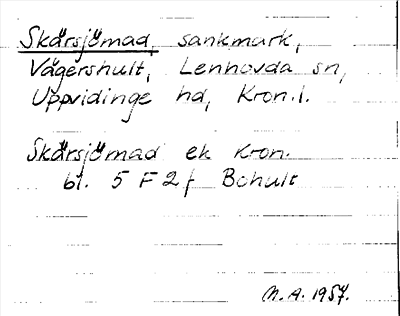 Skärsjömad, sankmark,
Vägershult, Lenhovda sn,
Uppvidinge hd, Kron.l.
Skärsjömad ek Kron.
bl. 5 F 2 f Bohult
M.A. 1957.